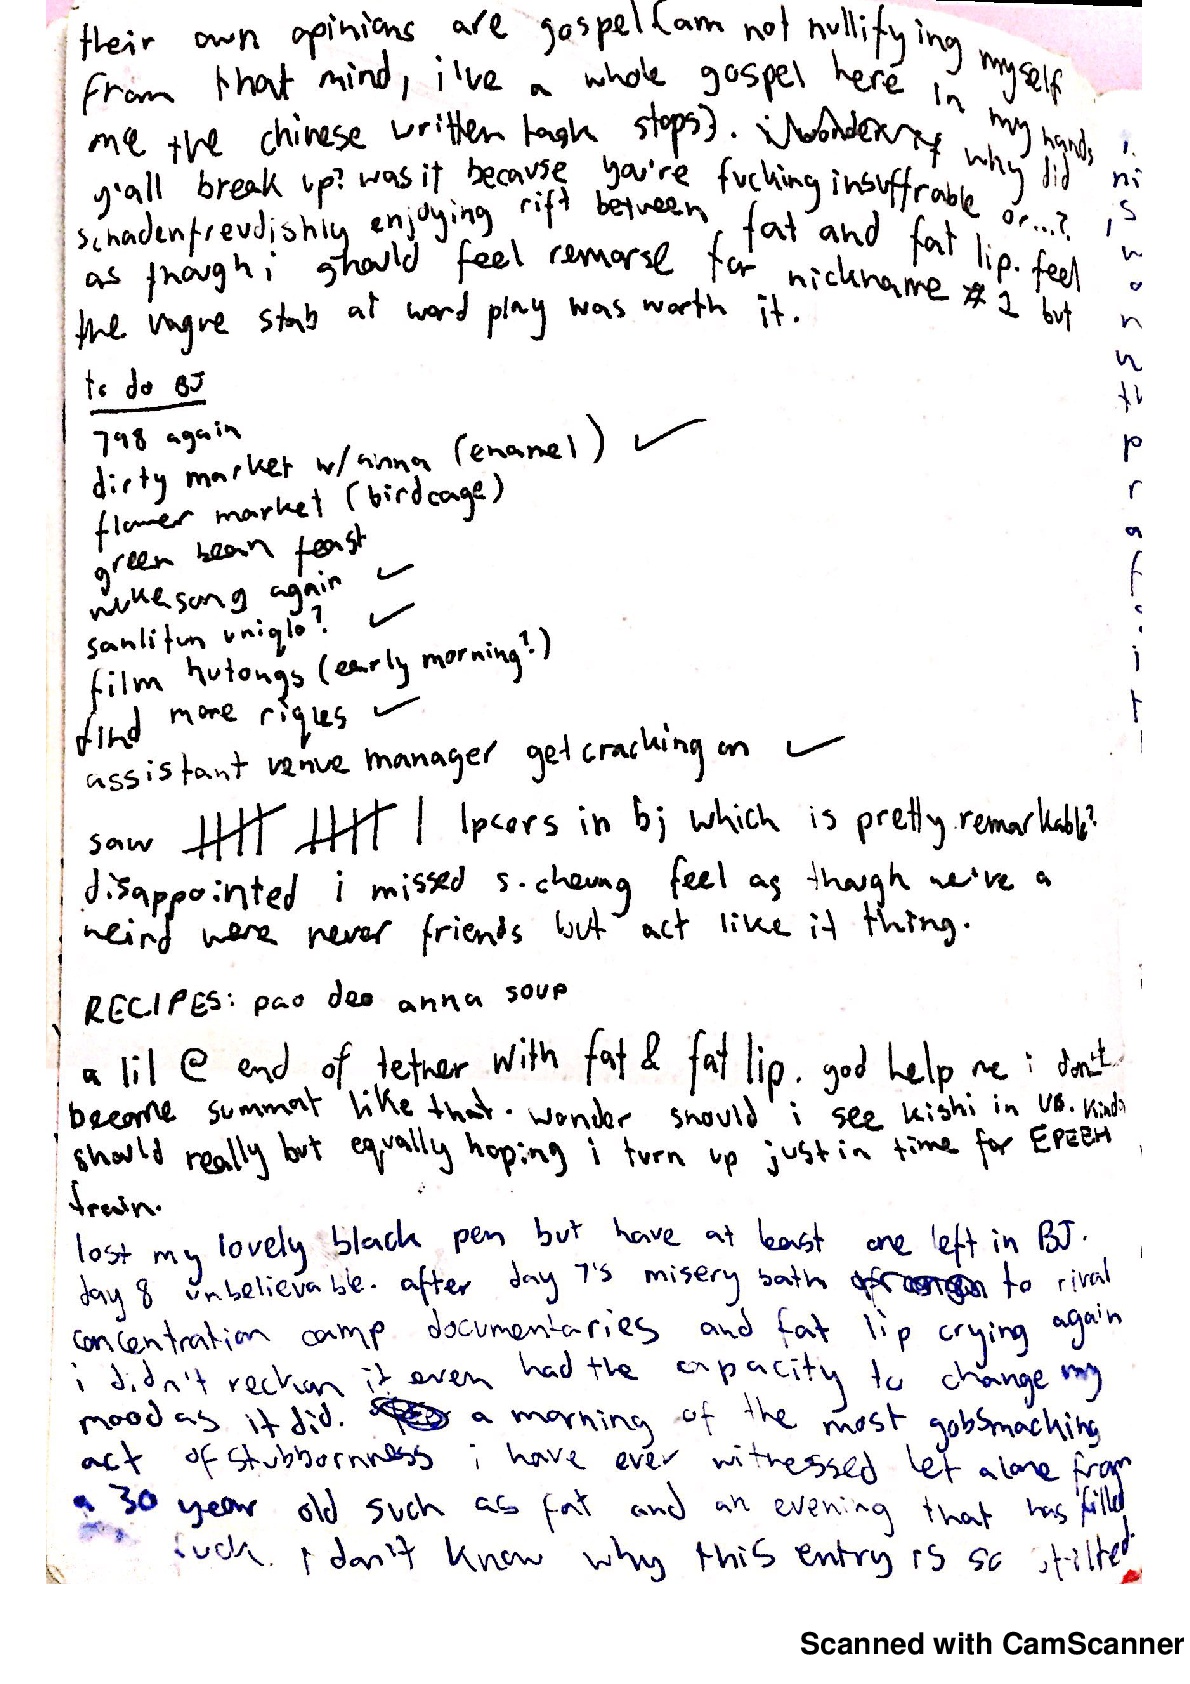 their own opinions are gospel (am not nullifying myself
from that mind, i've a whole gospel here in my hands
me the chinese written task stops). why did
y'all break up? was it because you're fucking insuffrable or...?
schadenfreudishly enjoying rift between fat and fat lip. feel
as though i should feel remorse for nickname #1 but
the vague stab at word play was worth it.
to do BJ
798 again
dirty market w/ anna (enamel) ✓
flower market (birdcage)
green bean feast
again ✓
sanlitun uniqlo? ✓
film hutongs (early morning?)
find more riques ✓
assistant venue manager get cracking on ✓
saw |||| |||| | lpcers in bj which is pretty remarkable?
disappointed i missed s. cheung feel as though we've a
weird were never friends but act like it thing.
RECIPES: pao deo anna soup
a lil @ end of tether with fat & fat lip. god help me i don't
become summat like that. wonder should i see kishi in UB. kinda
should really but equally hoping i turn up just in time for
train.
lost my lovely black pen but have at least one left in BJ.
day 8 unbelievable. after day 7's misery bath to rival
concentration camp documentaries and fat lip crying again
i didn't reckon it even had the capacity to change my
mood as it did. a morning of the most gobsmacking
act of stubbornness i have ever witnessed let alone from
a 30 year old such as fat and an evening that has filled
i don't know why this entry is so stilted.
Scanned with CamScanner